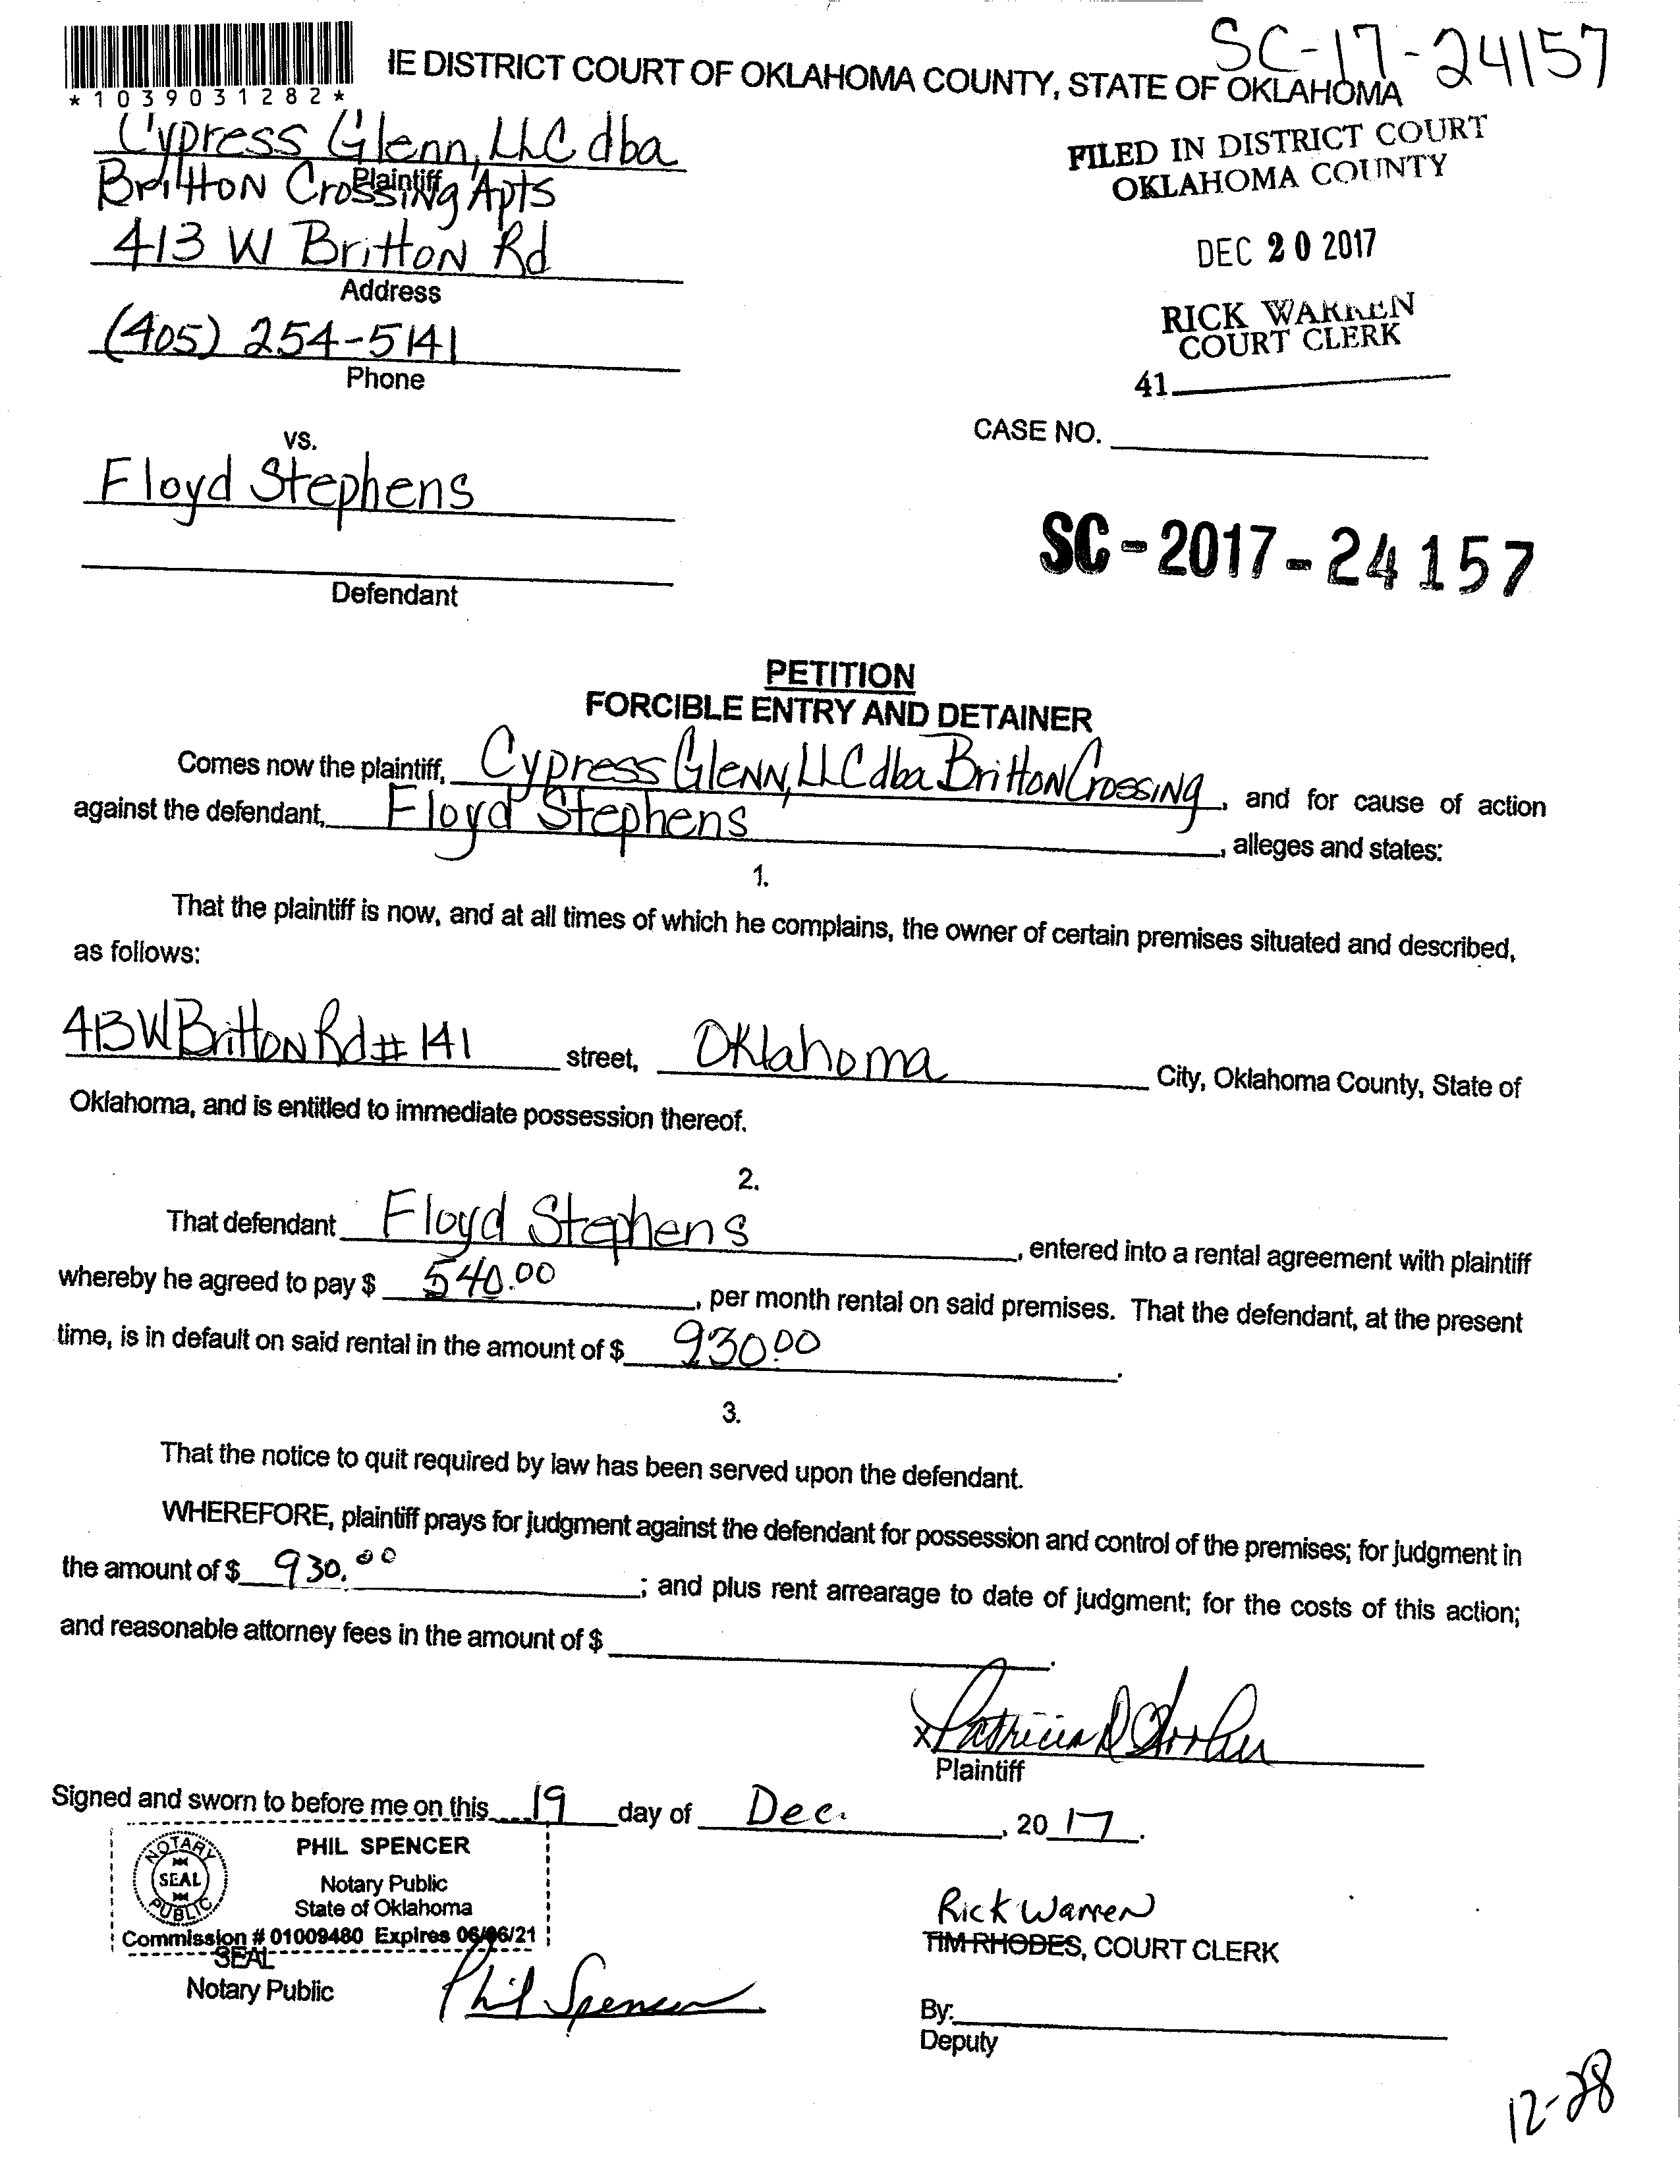 SC-17-24157
IE DISTRICT COURT OF OKLAHOMA COUNTY, STATE OF OKLAHOMA
*1039031282*
Cypress Glenn, LLC dba
Plaintiff
Britton Crossing Apts
413 W Britton Rd
Address
(405) 254-5141
Phone
FILED IN DISTRICT COURT
OKLAHOMA COUNTY
DEC 20 2017
RICK WARREN
COURT CLERK
41
CASE NO.
vs.
Floyd Stephens
Defendant
SC-2017-24157
PETITION
FORCIBLE ENTRY AND DETAINER
Comes now the plaintiff, Cypress Glenn, LLC dba Britton Crossing, and for cause of action
against the defendant, Floyd Stephens, alleges and states:
1.
That the plaintiff is now, and at all times of which he complains, the owner of certain premises situated and described,
as follows:
413 W Britton Rd # 141 street, Oklahoma City, Oklahoma County, State of
Oklahoma, and is entitled to immediate possession thereof.
2.
That defendant Floyd Stephens, entered into a rental agreement with plaintiff
whereby he agreed to pay $ 540.00, per month rental on said premises. That the defendant, at the present
time, is in default on said rental in the amount of $ 930.00.
3.
That the notice to quit required by law has been served upon the defendant.
WHEREFORE, plaintiff prays for judgment against the defendant for possession and control of the premises; for judgment in
the amount of $ 930.00; and plus rent arrearage to date of judgment; for the costs of this action;
and reasonable attorney fees in the amount of $ .
x Patricia D
Plaintiff
Signed and sworn to before me on this 19 day of Dec., 2017.
NOTARY PUBLIC
SEAL
PHIL SPENCER
Notary Public
State of Oklahoma
Commission # 01009480 Expires 06/06/21
SEAL
Notary Public Phil Spencer
Rick Warren
TIM RHODES, COURT CLERK
By:
Deputy
12-28